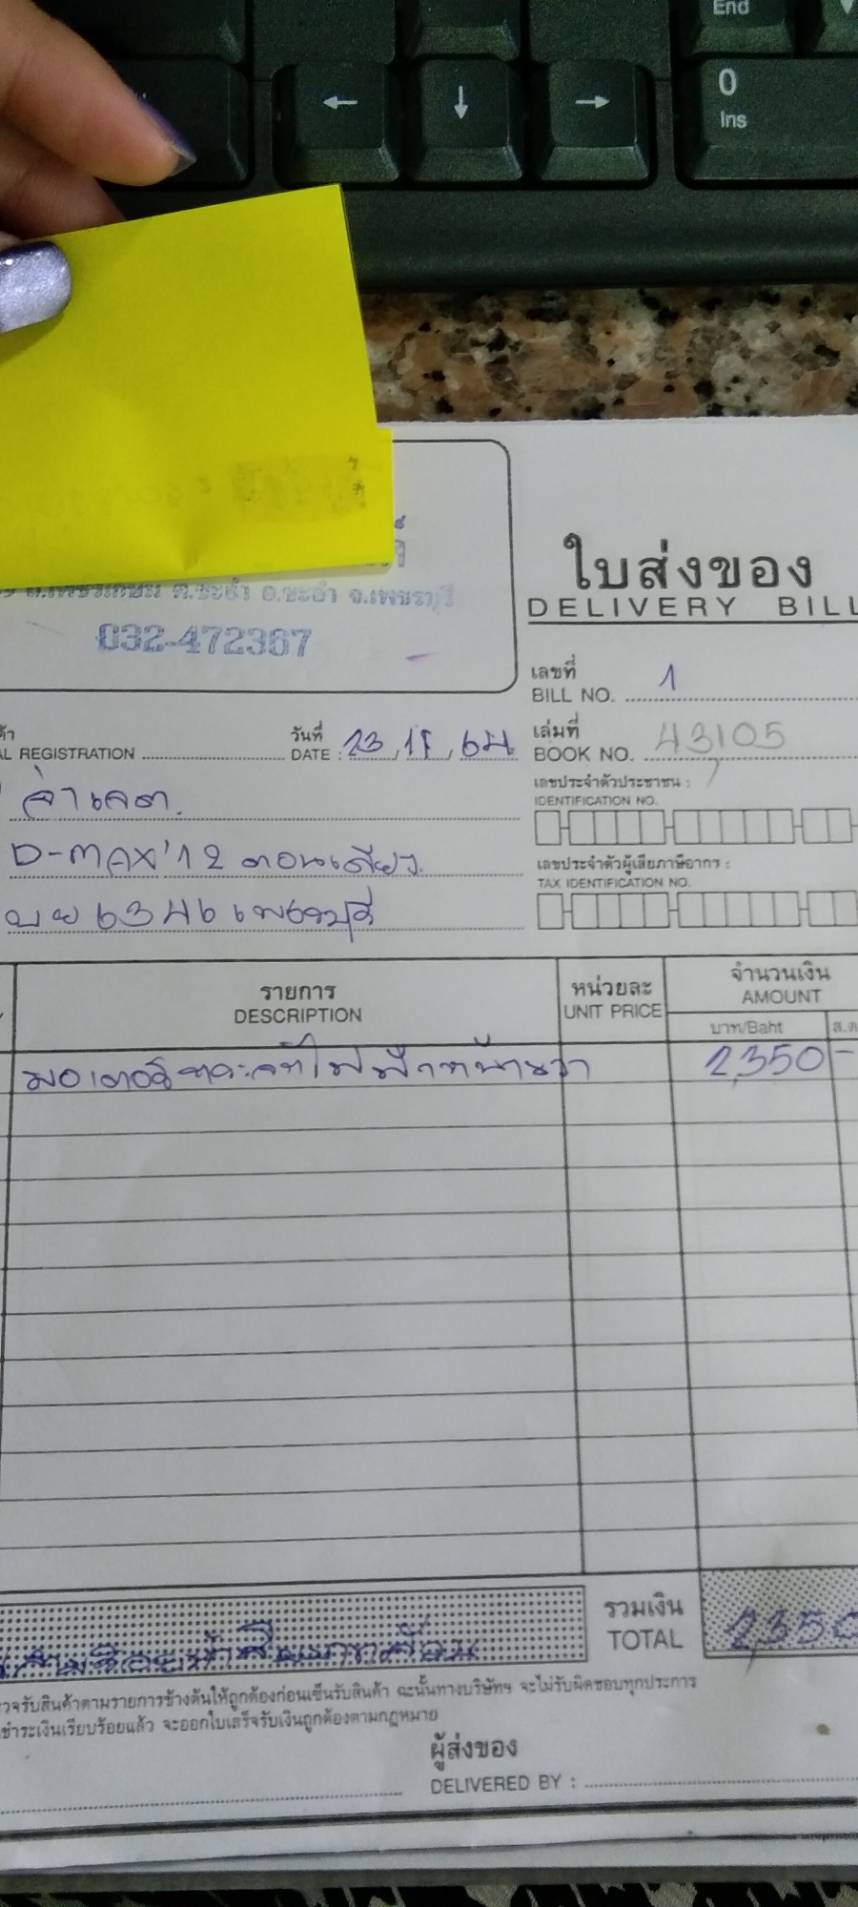 End
← ↓ → 0
Ins
ใบส่งของ
ถ.เพชรเกษม ต.ชะอำ อ.ชะอำ จ.เพชรบุรี
DELIVERY BILL
032-472367
เลขที่
BILL NO. 1
วันที่ เล่มที่
L REGISTRATION DATE : 23 BOOK NO. 43105
เลขประจำตัวประชาชน :
IDENTIFICATION NO.
จ่าเจต
D-MAX'12 ตอนเดียว
เลขประจำตัวผู้เสียภาษีอากร :
TAX IDENTIFICATION NO.
บย 6346 เพชรบุรี
รายการ หน่วยละ จำนวนเงิน
DESCRIPTION UNIT PRICE AMOUNT
บาท/Baht ส.ต
มอเตอร์ 2,350 -
รวมเงิน
TOTAL 2,350
สามร้อยห้าสิบบาทถ้วน
วจรับสินค้าตามรายการข้างต้นให้ถูกต้องก่อนเซ็นรับสินค้า ฉะนั้นทางบริษัทฯ จะไม่รับผิดชอบทุกประการ
ชำระเงินเรียบร้อยแล้ว จะออกใบเสร็จรับเงินถูกต้องตามกฎหมาย
ผู้ส่งของ
DELIVERED BY :